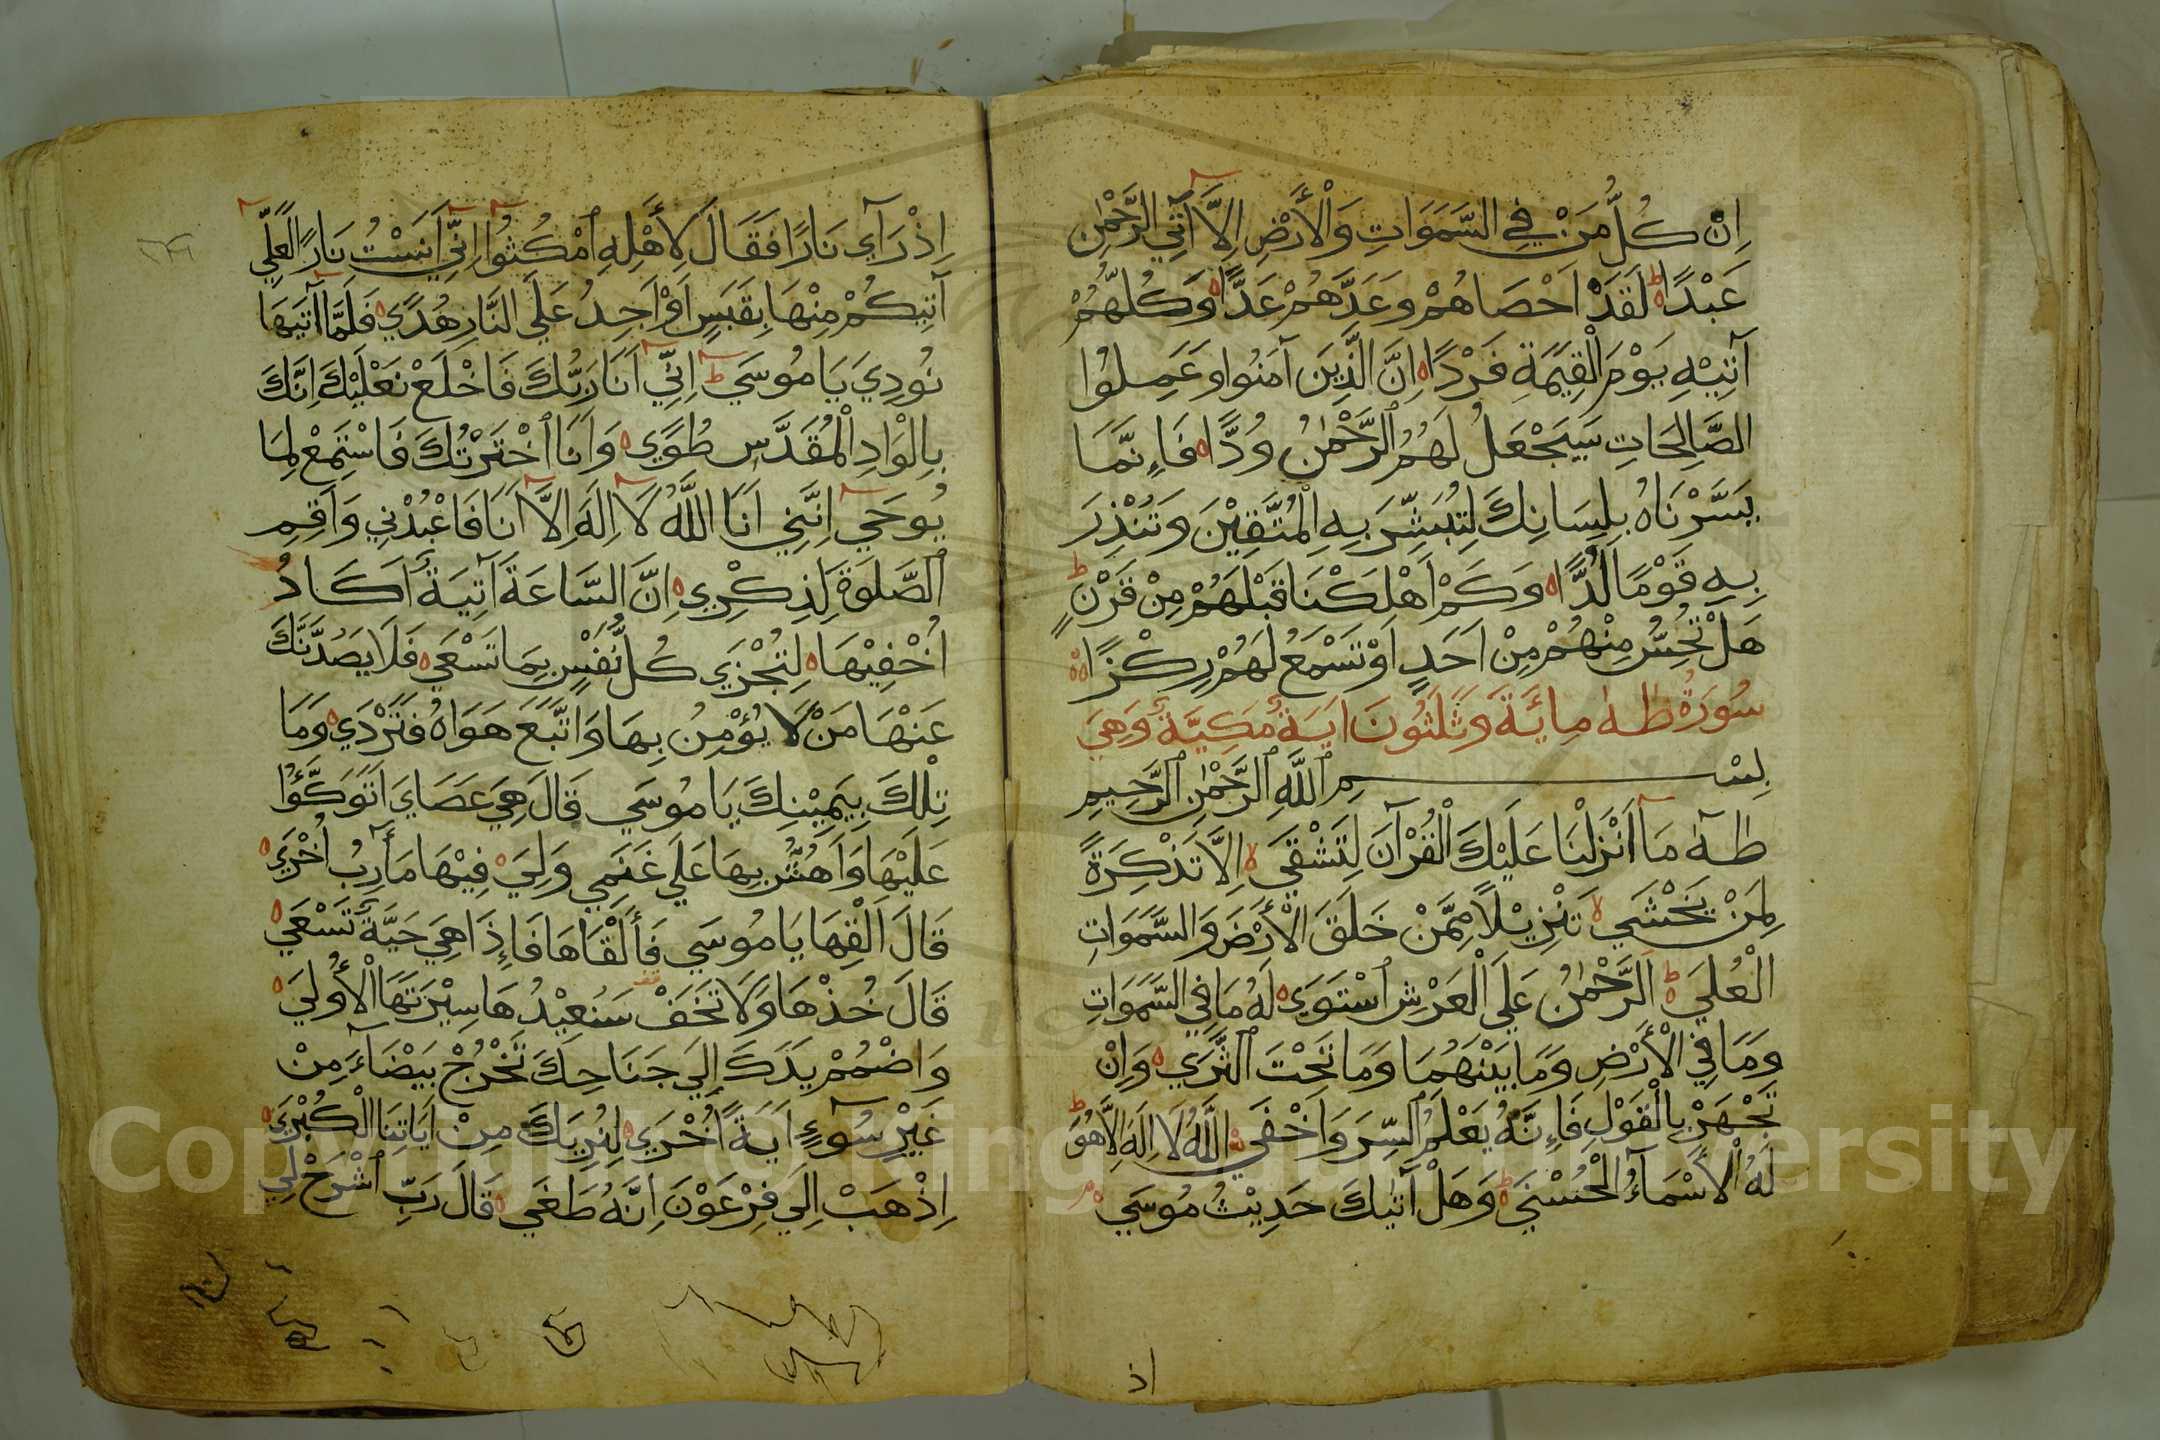 اِنْ كُلُّ مَنْ فِي السَّمَوَاتِ وَالْأَرْضِ اِلَّا آتِي الرَّحْمٰنِ
عَبْدًا لَقَدْ اَحْصَاهُمْ وَعَدَّهُمْ عَدًّا وَكُلُّهُمْ
آتِيْهِ يَوْمَ الْقِيٰمَةِ فَرْدًا اِنَّ الَّذِيْنَ آمَنُوا وَعَمِلُوا
الصَّالِحَاتِ سَيَجْعَلُ لَهُمُ الرَّحْمٰنُ وُدًّا فَاِنَّمَا
يَسَّرْنَاهُ بِلِسَانِكَ لِتُبَشِّرَ بِهِ الْمُتَّقِيْنَ وَتُنْذِرَ
بِهِ قَوْمًا لُدًّا وَكَمْ اَهْلَكْنَا قَبْلَهُمْ مِنْ قَرْنٍ
هَلْ تُحِسُّ مِنْهُمْ مِنْ اَحَدٍ اَوْ تَسْمَعُ لَهُمْ رِكْزًا
سُورَةُ طٰهٰ مِائَةٌ وَثَلٰثُونَ اٰيَةً مَكِيَّةٌ وَهِيَ
بِسْمِ اللّٰهِ الرَّحْمٰنِ الرَّحِيمِ
طٰهٰ مَا اَنْزَلْنَا عَلَيْكَ الْقُرْآنَ لِتَشْقَى اِلَّا تَذْكِرَةً
لِمَنْ يَخْشَى تَنْزِيْلًا مِمَّنْ خَلَقَ الْأَرْضَ وَالسَّمَوَاتِ
الْعُلَى اَلرَّحْمٰنُ عَلَى الْعَرْشِ اسْتَوَى لَهُ مَا فِي السَّمَوَاتِ
وَمَا فِي الْأَرْضِ وَمَا بَيْنَهُمَا وَمَا تَحْتَ الثَّرَى وَاِنْ
تَجْهَرْ بِالْقَوْلِ فَاِنَّهُ يَعْلَمُ السِّرَّ وَاَخْفَى اَللّٰهُ لَا اِلَهَ اِلَّا هُوَ
لَهُ الْاَسْمَآءُ الْحُسْنَى وَهَلْ آتٰيكَ حَدِيْثُ مُوسَى
اذ
اِذْ رَآى نَارًا فَقَالَ لِأَهْلِهِ امْكُثُوا اِنِّي آنَسْتُ نَارًا لَعَلِّي
آتِيْكُمْ مِنْهَا بِقَبَسٍ اَوْ اَجِدُ عَلَى النَّارِ هُدًى فَلَمَّا اَتٰيهَا
نُودِيَ يَا مُوسَى اِنِّي اَنَا رَبُّكَ فَاخْلَعْ نَعْلَيْكَ اِنَّكَ
بِالْوَادِ الْمُقَدَّسِ طُوًى وَاَنَا اخْتَرْتُكَ فَاسْتَمِعْ لِمَا
يُوحَى اِنَّنِي اَنَا اللّٰهُ لَا اِلَهَ اِلَّا اَنَا فَاعْبُدْنِي وَاَقِمِ
الصَّلٰوةَ لِذِكْرِي اِنَّ السَّاعَةَ آتِيَةٌ اَكَادُ
اُخْفِيْهَا لِتُجْزَى كُلُّ نَفْسٍ بِمَا تَسْعَى فَلَا يَصُدَّنَّكَ
عَنْهَا مَنْ لَا يُؤْمِنُ بِهَا وَاتَّبَعَ هَوَاهُ فَتَرْدَى وَمَا
تِلْكَ بِيَمِيْنِكَ يَا مُوسَى قَالَ هِيَ عَصَايَ اَتَوَكَّؤُا
عَلَيْهَا وَاَهُشُّ بِهَا عَلَى غَنَمِي وَلِيَ فِيْهَا مَآرِبُ اُخْرَى
قَالَ اَلْقِهَا يَا مُوسَى فَأَلْقَاهَا فَاِذَا هِيَ حَيَّةٌ تَسْعَى
قَالَ خُذْهَا وَلَا تَخَفْ سَنُعِيْدُهَا سِيْرَتَهَا الْأُولَى
وَاضْمُمْ يَدَكَ اِلَى جَنَاحِكَ تَخْرُجْ بَيْضَآءَ مِنْ
غَيْرِ سُوٓءٍ اٰيَةً اُخْرَى لِنُرِيَكَ مِنْ اٰيَاتِنَا الْكُبْرَى
اِذْهَبْ اِلَى فِرْعَوْنَ اِنَّهُ طَغَى قَالَ رَبِّ اشْرَحْ لِي
Copyright © King Saud University